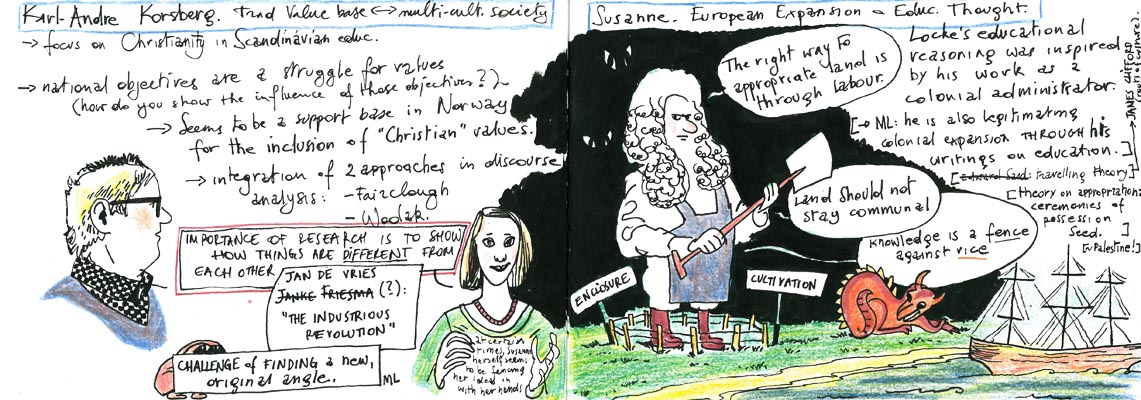 Karl-Andre Korsberg. Trad Value base ↔ multi-cult. society
→ focus on Christianity in Scandinavian educ.
→ national objectives are a struggle for values
(how do you show the influence of those objectives?)
→ Seems to be a support base in Norway
for the inclusion of "Christian" values.
→ integration of 2 approaches in discourse
analysis: - Fairclough
- Wodak.
IMPORTANCE OF RESEARCH IS TO SHOW
HOW THINGS ARE DIFFERENT FROM
EACH OTHER
JAN DE VRIES
JANKE FRIESMA (?):
"THE INDUSTRIOUS
REVOLUTION"
CHALLENGE of FINDING a new,
original angle..
ML
at certain
times, Susanne
herself seems
to be fencing
her ideas in
with her hands
Susanne. European Expansion & Educ. Thought.
The right way to
appropriate land is
through labour.
Land should not
stay communal
Knowledge is a fence
against vice
ENCLOSURE
CULTIVATION
Locke's educational
reasoning was inspired
by his work as a
colonial administrator.
[→ ML: he is also legitimating
colonial expansion THROUGH his
writings on education.]
[Edward Said: travelling theory]
[theory on appropriation:
ceremonies of
possession
Seed.]
[~Palestine!]
→ JAMES CLIFFORD